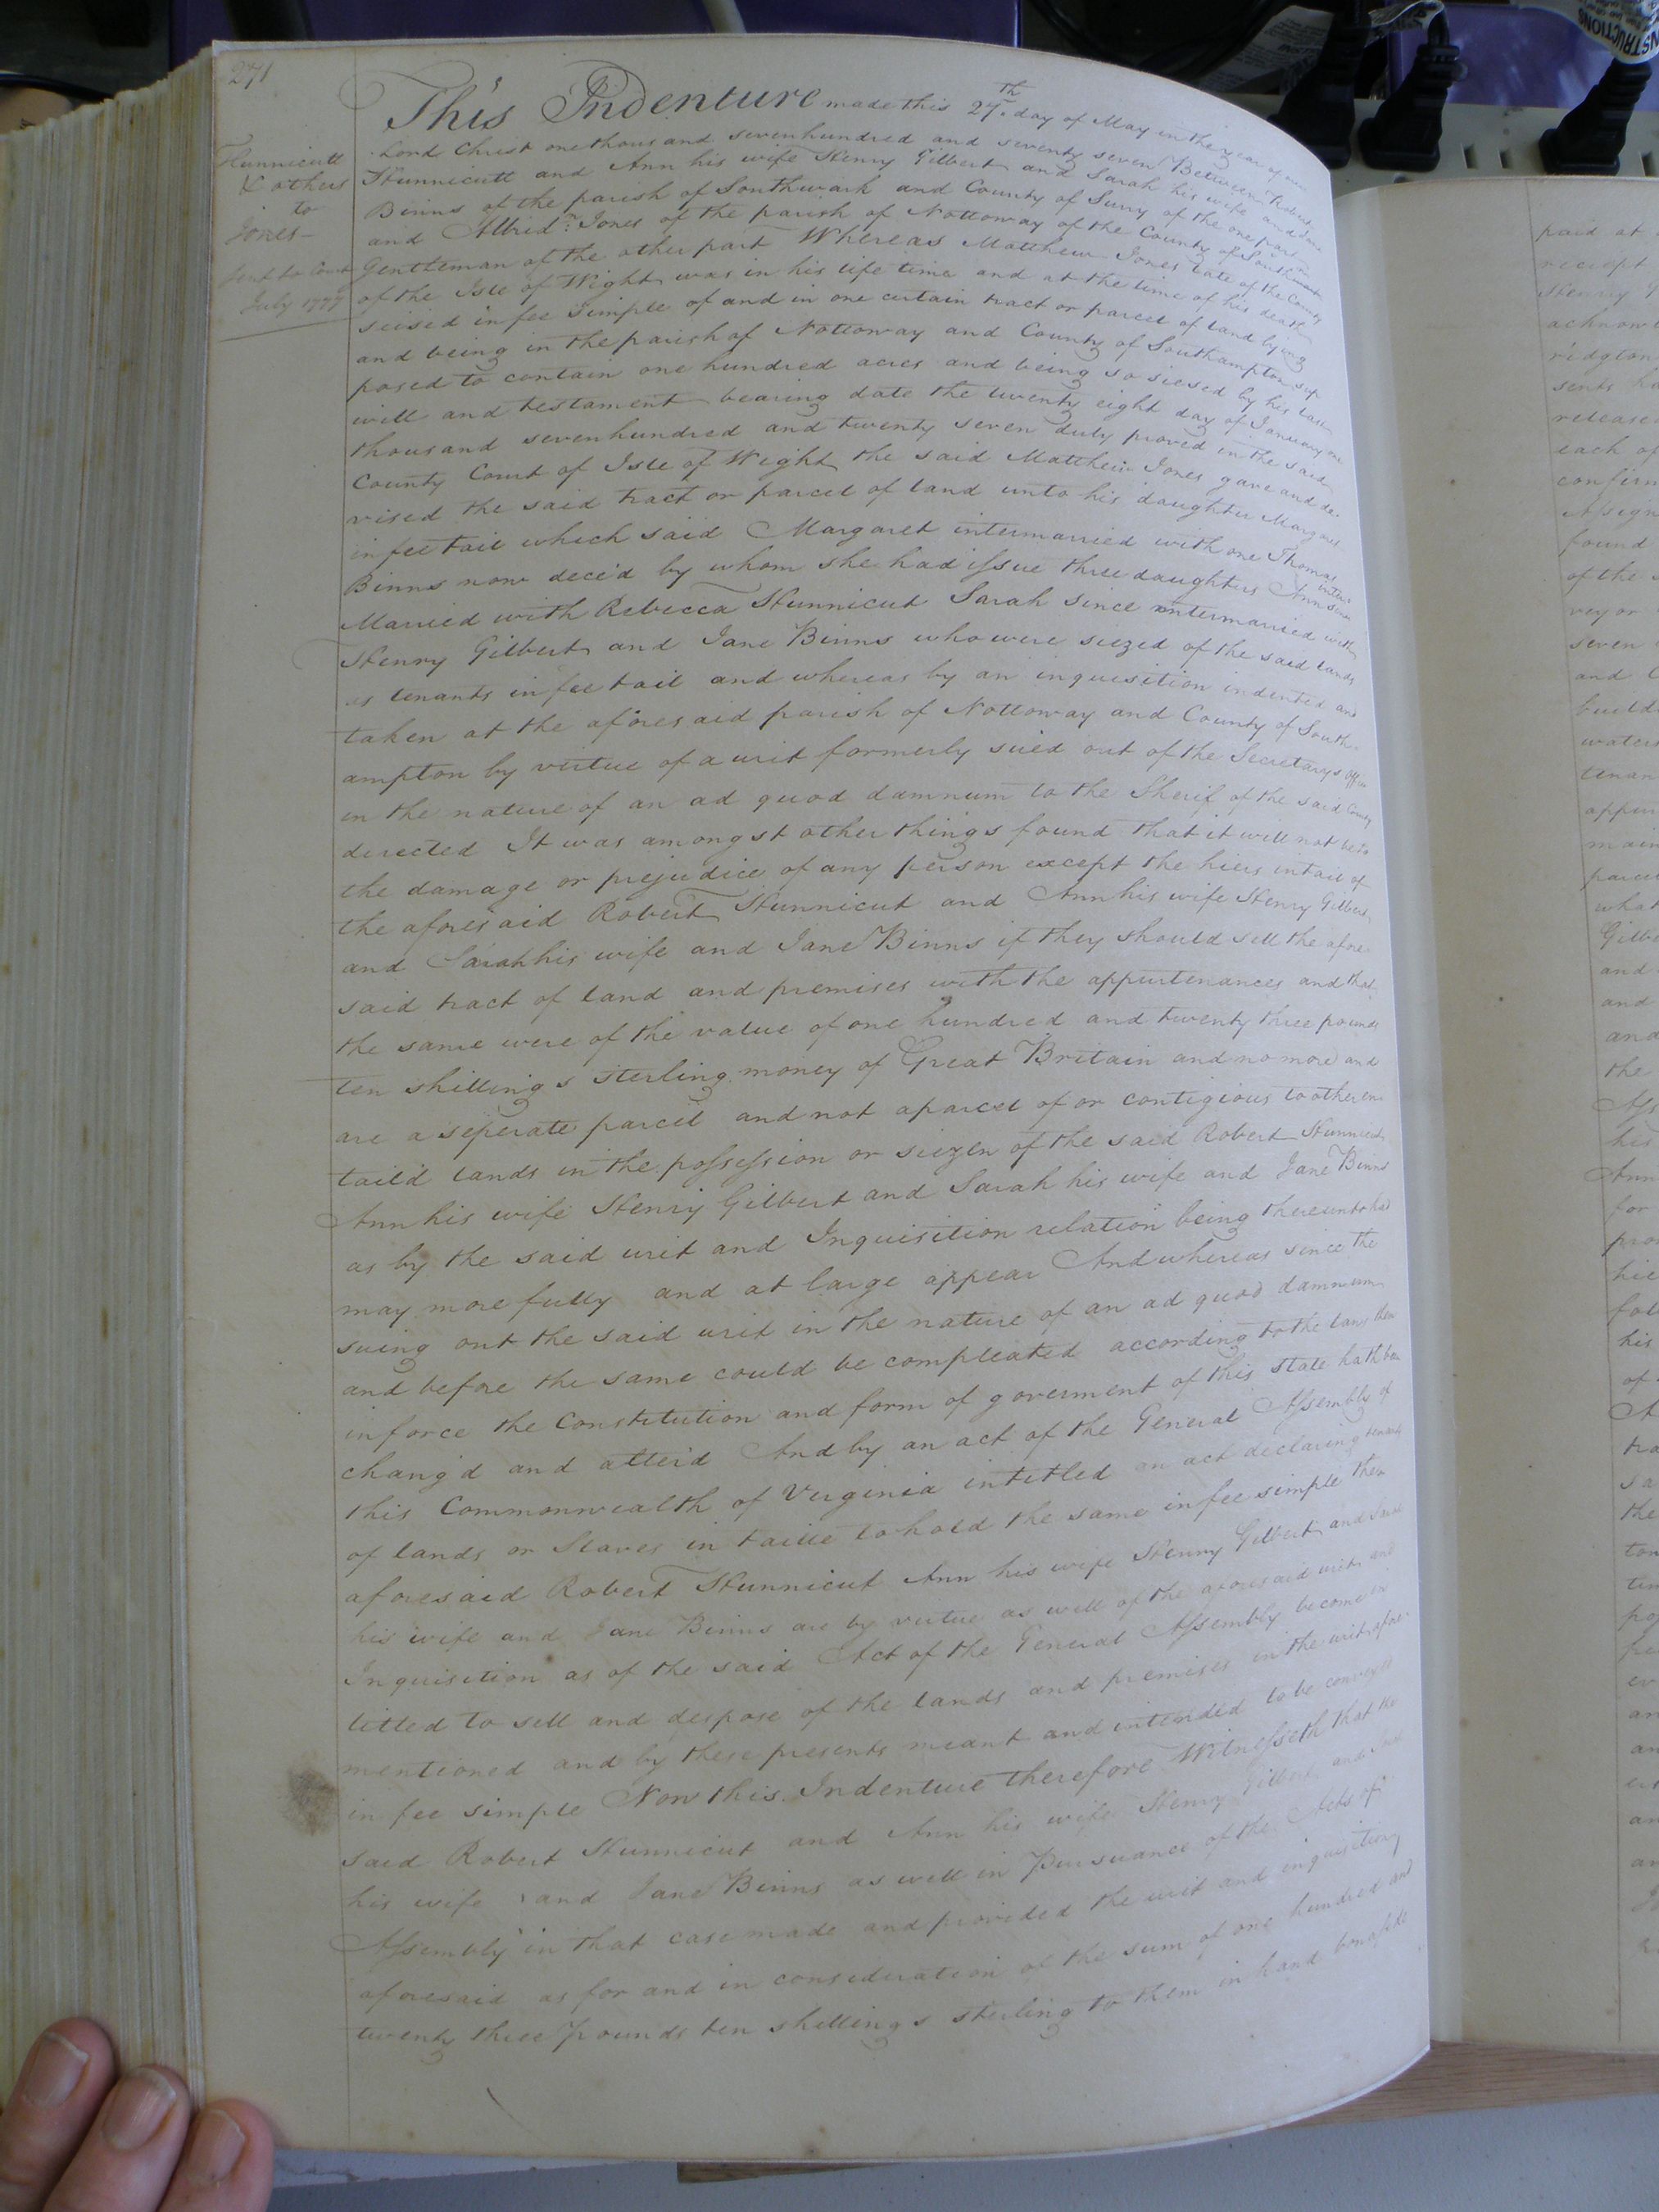 271
Hunnicutt
& others
to
Jones
Sent to Court
July 1779
This Indenture made this 27th day of May in the year of our
Lord Christ one thousand sevenhundred and seventy seven Between Robert
Hunnicutt and Ann his wife Henry Gilbert and Sarah his wife and Jane
Binns of the parish of Southwark and County of Surry of the one part
and Albridn. Jones of the parish of Nottoway of the County of Southampton
Gentleman of the other part Whereas Matthew Jones late of the County
of the Isle of Wight was in his life time and at the time of his death
seised in fee Simple of and in one certain tract or parcel of land lying
and being in the parish of Nottoway and County of Southampton sup
posed to contain one hundred acres and being so siesed by his last
will and testament bearing date the twenty eight day of January one
thousand sevenhundred and twenty seven duly proved in the said
County Court of Isle of Wight the said Matthew Jones gave and de-
vised the said tract or parcel of land unto his daughter Margaret
in fee tail which said Margaret intermarried with one Thomas
Binns now dece'd by whom she had issue three daughters Ann since inter
Married with Rebecca Hunnicut Sarah since intermarried with
Henry Gilbert and Jane Binns who were siezed of the said lands
as tenants in fee tail and whereas by an inquisition indented and
taken at the aforesaid parish of Nottoway and County of South-
ampton by virtue of a writ formerly sued out of the Secretarys office
in the nature of an ad quod damnum to the Sherif of the said County
directed It was amongst other things found that it will not be to
the damage or prejudice of any person except the hiers intail of
the aforesaid Robert Hunnicut and Ann his wife Henry Gilbert
and Sarah his wife and Jane Binns if they should sell the afore-
said tract of land and premises with the appurtenances and that
the same were of the value of one hundred and twenty three pounds
ten shillings sterling money of Great Britain and no more and
are a seperate parcel and not a parcel of or contigious to other en-
tail'd lands in the possession or siezen of the said Robert Hunnicut
Ann his wife Henry Gilbert and Sarah his wife and Jane Binns
as by the said writ and Inquisition relation being thereunto had
may more fully and at large appear And whereas since the
suing out the said writ in the nature of an ad quod damnum
and before the same could be compleated according to the laws then
inforce the Constitution and form of goverment of this state hath been
chang'd and alter'd And by an act of the General Assembly of
this Commonwealth of Verginia intitled an act declaring tenants
of lands or Slaves in taille to hold the same in fee simple the
aforesaid Robert Hunnicut Ann his wife Henry Gilbert and Sarah
his wife and Jane Binns are by virtue as well of the aforesaid writ and
Inquisition as of the said Act of the General Assembly become in
titled to sell and despose of the lands and premises in the writ afore-
mentioned and by these presents meant and intended to be conveyed
in fee simple Now this Indenture therefore Witnesseth that the
said Robert Hunnicut and Ann his wife Henry Gilbert and Sarah
his wife and Jane Binns as well in Pursuance of the Acts of
Assembly in that case made and provided the writ and inquisition
aforesaid as for and in consideration of the sum of one hundred and
twenty three pounds ten shillings sterling to them in hand bonafide
paid at
reciept
Henry
acknow
ridgton
sents ha
release
each of
confirm
Assign
found
of the
vey or
seven
and
build
waters
tenan
appur
main
parcel
what
Gilbe
and
and
and
the
Ass
his
Ann
for
pro
hie
fol
his
of